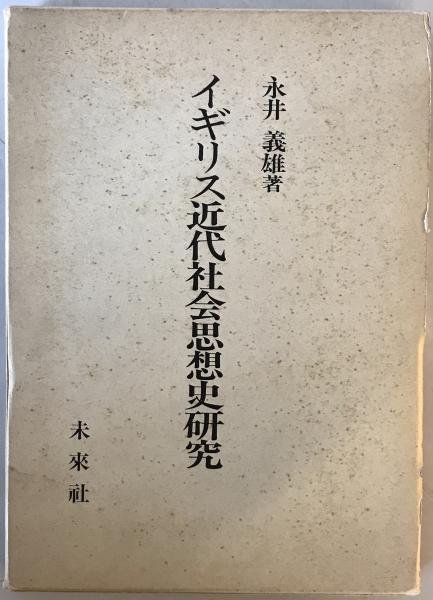 永井 義雄著
イギリス近代社会思想史研究
未來社